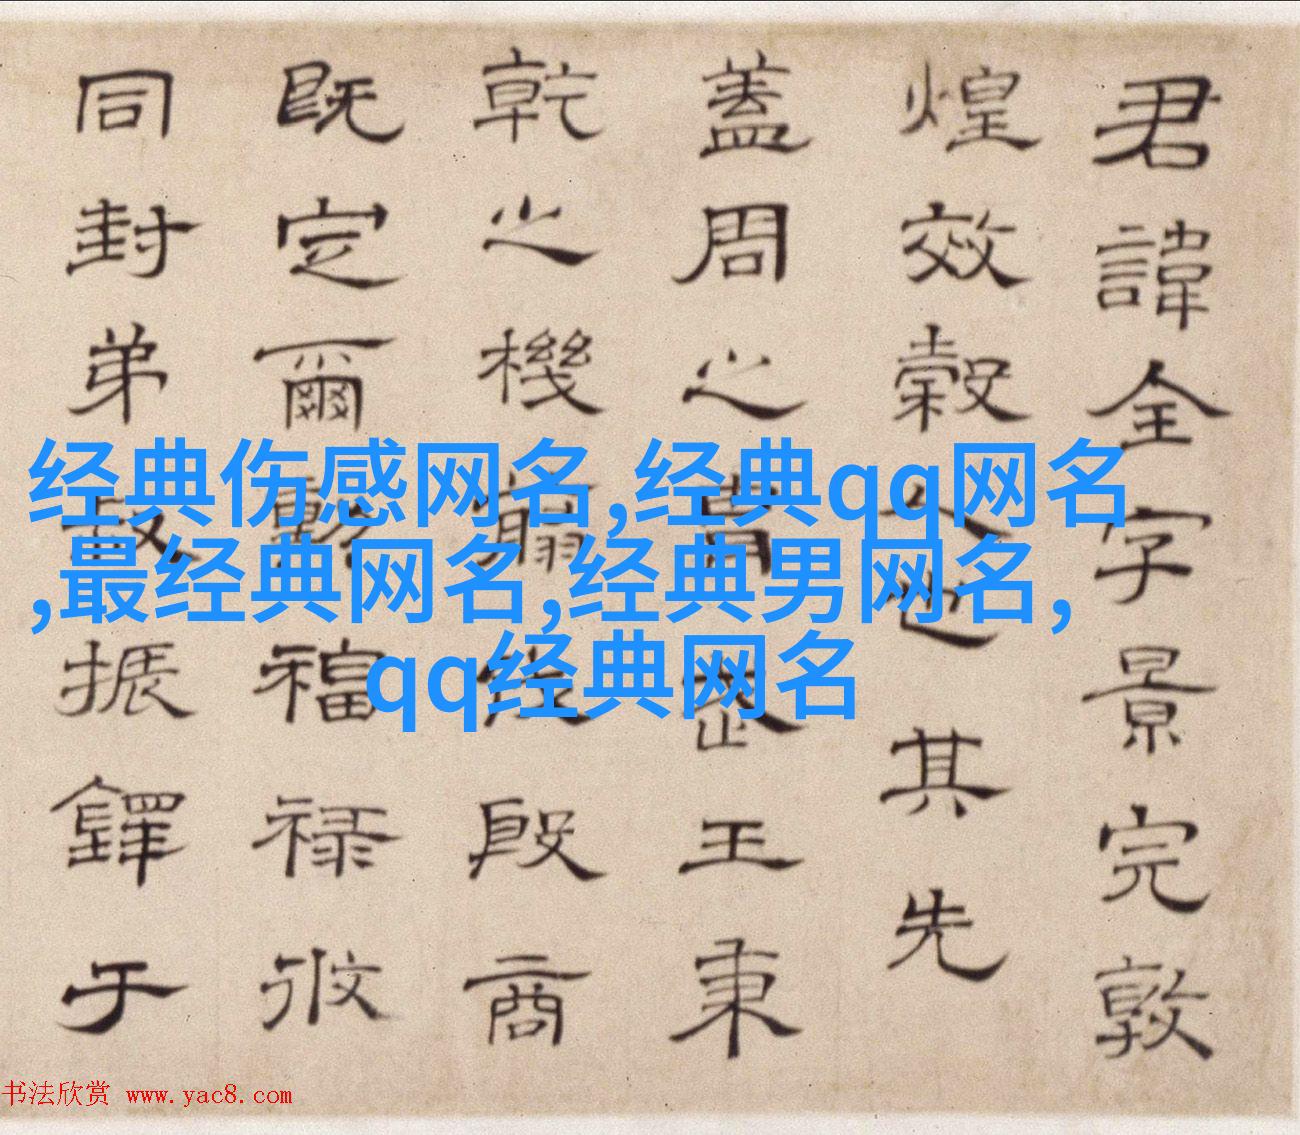 君諱全字景完敦
煌效穀人也其先
蓋周之胄武王秉
乾之機翦伐殷商
既定爾勳福禄攸
同封弟叔振鐸于
经典伤感网名,经典qq网名
,最经典网名,经典男网名,
qq经典网名
书法欣赏 www.yac8.com